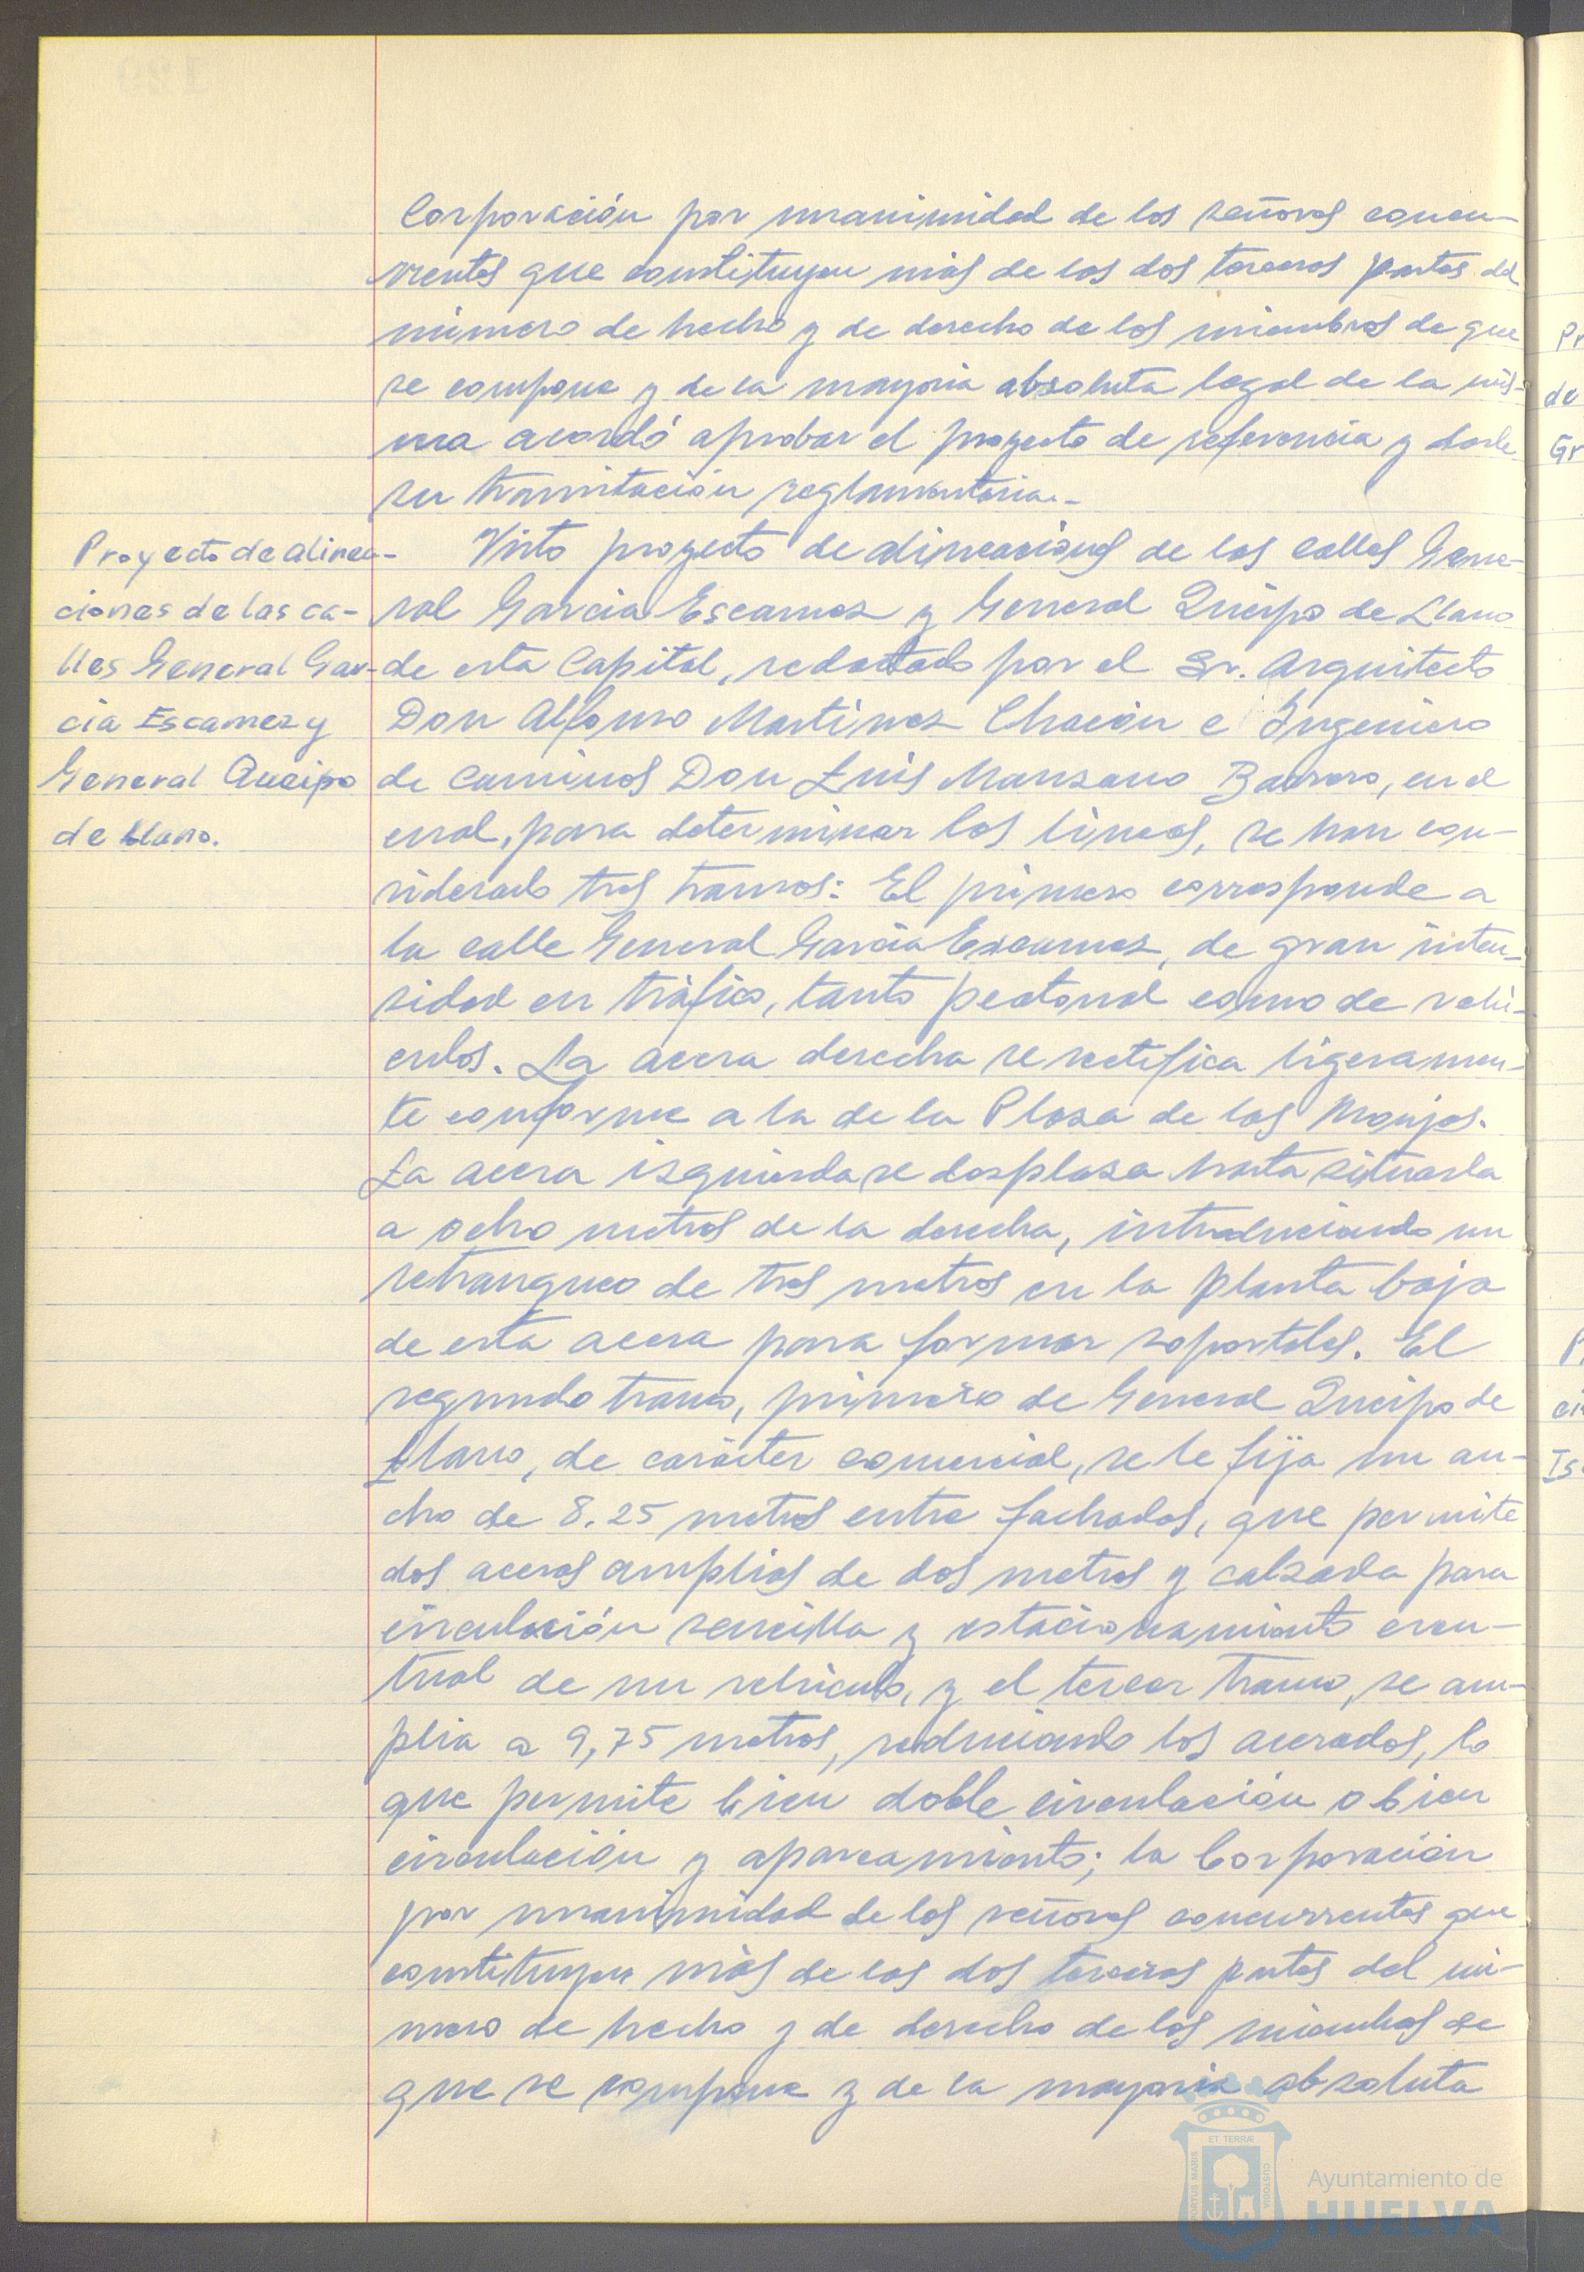 Corporación por unanimidad de los señores concu-
rrentes que constituyen más de las dos terceras partes del
número de hecho y de derecho de los miembros de que
se compone y de la mayoria absoluta legal de la mis-
ma acordó aprobar el proyecto de referencia y darle
su tramitación reglamentaria.-
Proyecto de alinea-
ciones de las ca-
lles General Gar-
cia Escamez y
General Queipo
de Llano.
Visto proyecto de alineaciones de las calles Gene-
ral Garcia Escamez y General Queipo de Llano
de esta Capital, redactado por el Sr. Arquitecto
Don Alfonso Martinez Chacón e Ingeniero
de Caminos Don Luis Manzano Barrero, en el
cual, para determinar las lineas, se han con-
siderado tres tramos: El primero corresponde a
la calle General Garcia Escamez, de gran inten-
sidad en tráfico, tanto peatonal como de vehi-
culos. La acera derecha se rectifica ligeramen-
te conforme a la de la Plaza de las Monjas.
La acera izquierda se desplaza hasta situarla
a ocho metros de la derecha, introduciendo un
retranqueo de tres metros en la planta baja
de esta acera para formar soportales. El
segundo tramo, primero de General Queipo de
Llano, de carácter comercial, se le fija un an-
cho de 8.25 metros entre fachadas, que permite
dos aceras amplias de dos metros y calzada para
circulación sencilla y estacionamiento even-
tual de un vehiculo, y el tercer tramo, se am-
plia a 9,75 metros, reduciendo los acerados, lo
que permite bien doble circulación o bien
circulación y aparcamiento; la Corporación
por unanimidad de los señores concurrentes que
constituyen más de las dos terceras partes del nú-
mero de hecho y de derecho de los miembros de
que se compone y de la mayoria absoluta
PORTUS MARIS
ET TERRÆ
CUSTODIA
Ayuntamiento de
HUELVA
Pr
de
Gr
P.
ci
Is